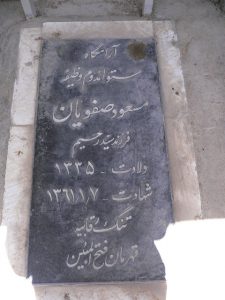 آرامگاه
ستواندوم وظیفه
مسعود صفویان
فرزند سید رحیم
ولادت - ۱۳۳۵
شهادت - ۱۳۶۱/۱/۷
تنگ رقابیه
قهرمان فتح المبین